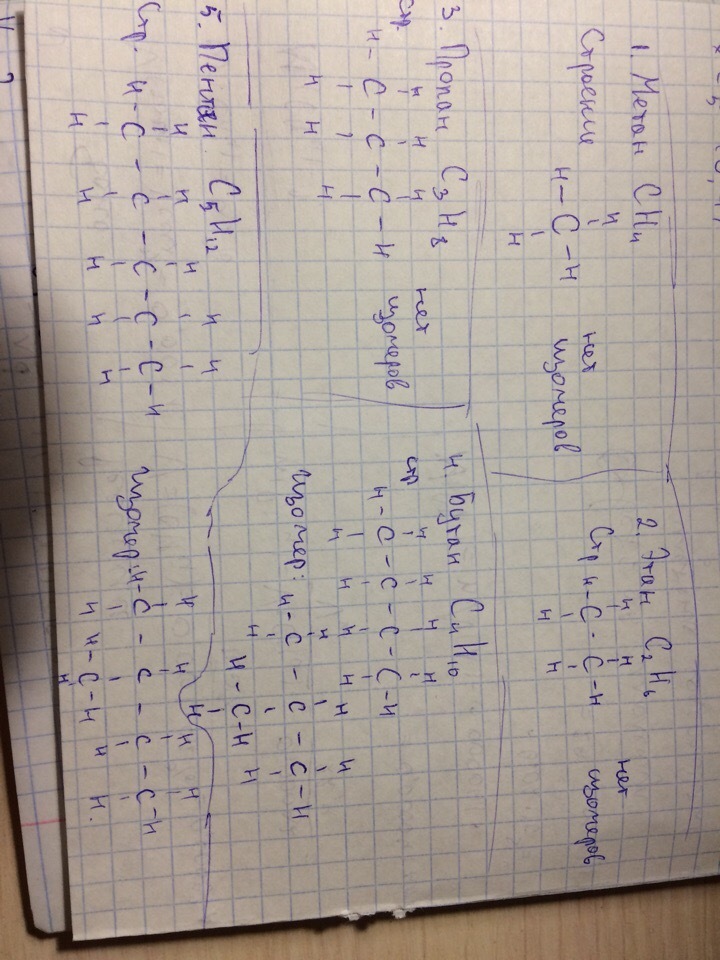 1. Метан CH₄
Строение
H
H–C–H
H
нет
изомеров
2. Этан C₂H₆
Стр
H H
H–C–C–H
H H
нет
изомеров
3. Пропан C₃H₈
стр
H H H
H–C–C–C–H
H H H
нет
изомеров
4. Бутан C₄H₁₀
стр
H H H H
H–C–C–C–C–H
H H H H
Изомер:
H H H
H–C–C–C–H
H H
H–C–H
H
5. Пентан C₅H₁₂
Стр.
H H H H H
H–C–C–C–C–C–H
H H H H H
Изомер:
H H H H
H–C–C–C–C–H
H H–C–H H H.
H